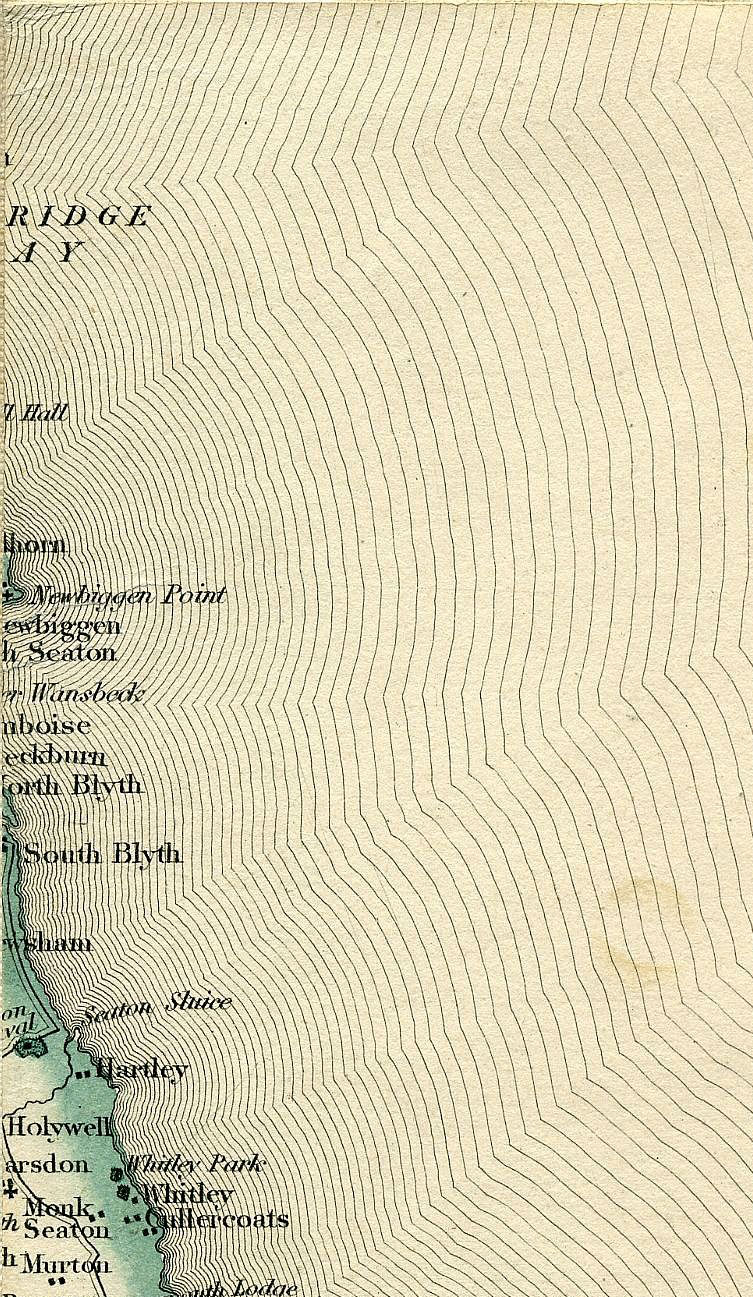 RIDGE
AY
Hall
horn
Newbiggen Point
ewbiggen
h Seaton
er Wansbeck
mboise
eckburn
orth Blyth
South Blyth
wsham
Seaton Sluice
on
val
Hartley
Holywell
arsdon
Whitley Park
Whitley
Monk
Cullercoats
h Seaton
h
Murton
outh Lodge